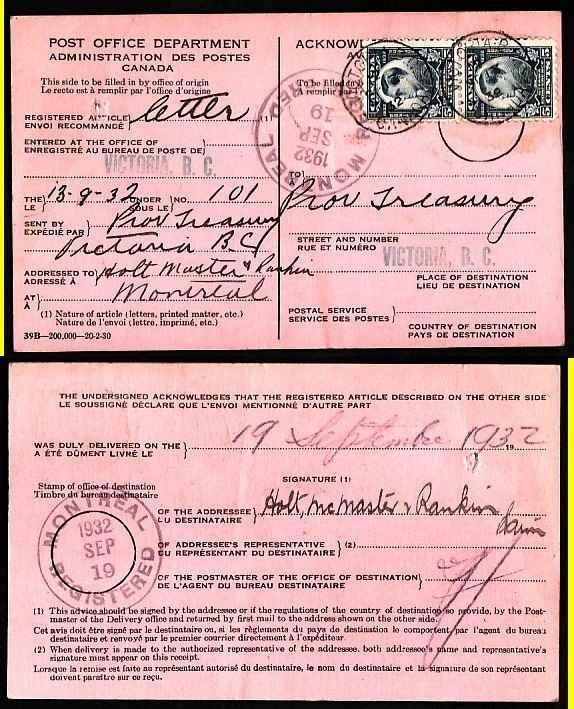 POST OFFICE DEPARTMENT
ADMINISTRATION DES POSTES
CANADA
This side to be filled in by office of origin
Le recto est à remplir par l'office d'origine
REGISTERED ARTICLE
ENVOI RECOMMANDÉ } letter (1)
ENTERED AT THE OFFICE OF
ENREGISTRÉ AU BUREAU DE POSTE DE
VICTORIA, B. C.
THE
LE } 13-9-32 UNDER
SOUS LE } NO. 101
SENT BY
EXPÉDIÉ PAR } Prov Treasury
Victoria B.C
ADDRESSED TO
ADRESSÉ À } Holt Master & Rankin
AT
À } Montreal
(1) Nature of article (letters, printed matter, etc.)
Nature de l'envoi (lettre, imprimé, etc.)
39B—200,000—20-2-30
ACKNOWL
To be filled
À remplir par
MONTREAL
1932
SEP
19
TO
À } Prov Treasury
STREET AND NUMBER
RUE ET NUMÉRO
VICTORIA, B. C.
PLACE OF DESTINATION
LIEU DE DESTINATION
POSTAL SERVICE
SERVICE DES POSTES
COUNTRY OF DESTINATION
PAYS DE DESTINATION
THE UNDERSIGNED ACKNOWLEDGES THAT THE REGISTERED ARTICLE DESCRIBED ON THE OTHER SIDE
LE SOUSSIGNÉ DÉCLARE QUE L'ENVOI MENTIONNÉ D'AUTRE PART
WAS DULY DELIVERED ON THE
A ÉTÉ DÛMENT LIVRÉ LE } 19 Septembre 1932 19
Stamp of office of destination
Timbre du bureau destinataire
MONTREAL
1932
SEP
19
REGISTERED
SIGNATURE (1)
OF THE ADDRESSEE
DU DESTINATAIRE } Holt, McMaster & Rankin
OF ADDRESSEE'S REPRESENTATIVE
DU REPRÉSENTANT DU DESTINATAIRE } (2)
OF THE POSTMASTER OF THE OFFICE OF DESTINATION
DE L'AGENT DU BUREAU DESTINATAIRE }
(1) This advice should be signed by the addressee or if the regulations of the country of destination so provide, by the Post-
master of the Delivery office and returned by first mail to the address shown on the other side.
Cet avis doit être signé par le destinataire ou, si les règlements du pays de destination le comportent par l'agent du bureau
destinataire et renvoyé par le premier courrier directement à l'expéditeur.
(2) When delivery is made to the authorized representative of the addressee, both addressee's name and representative's
signature must appear on this receipt.
Lorsque la remise est faite au représentant autorisé du destinataire, le nom du destinataire et la signature de son représentant
doivent paraître sur ce reçu.